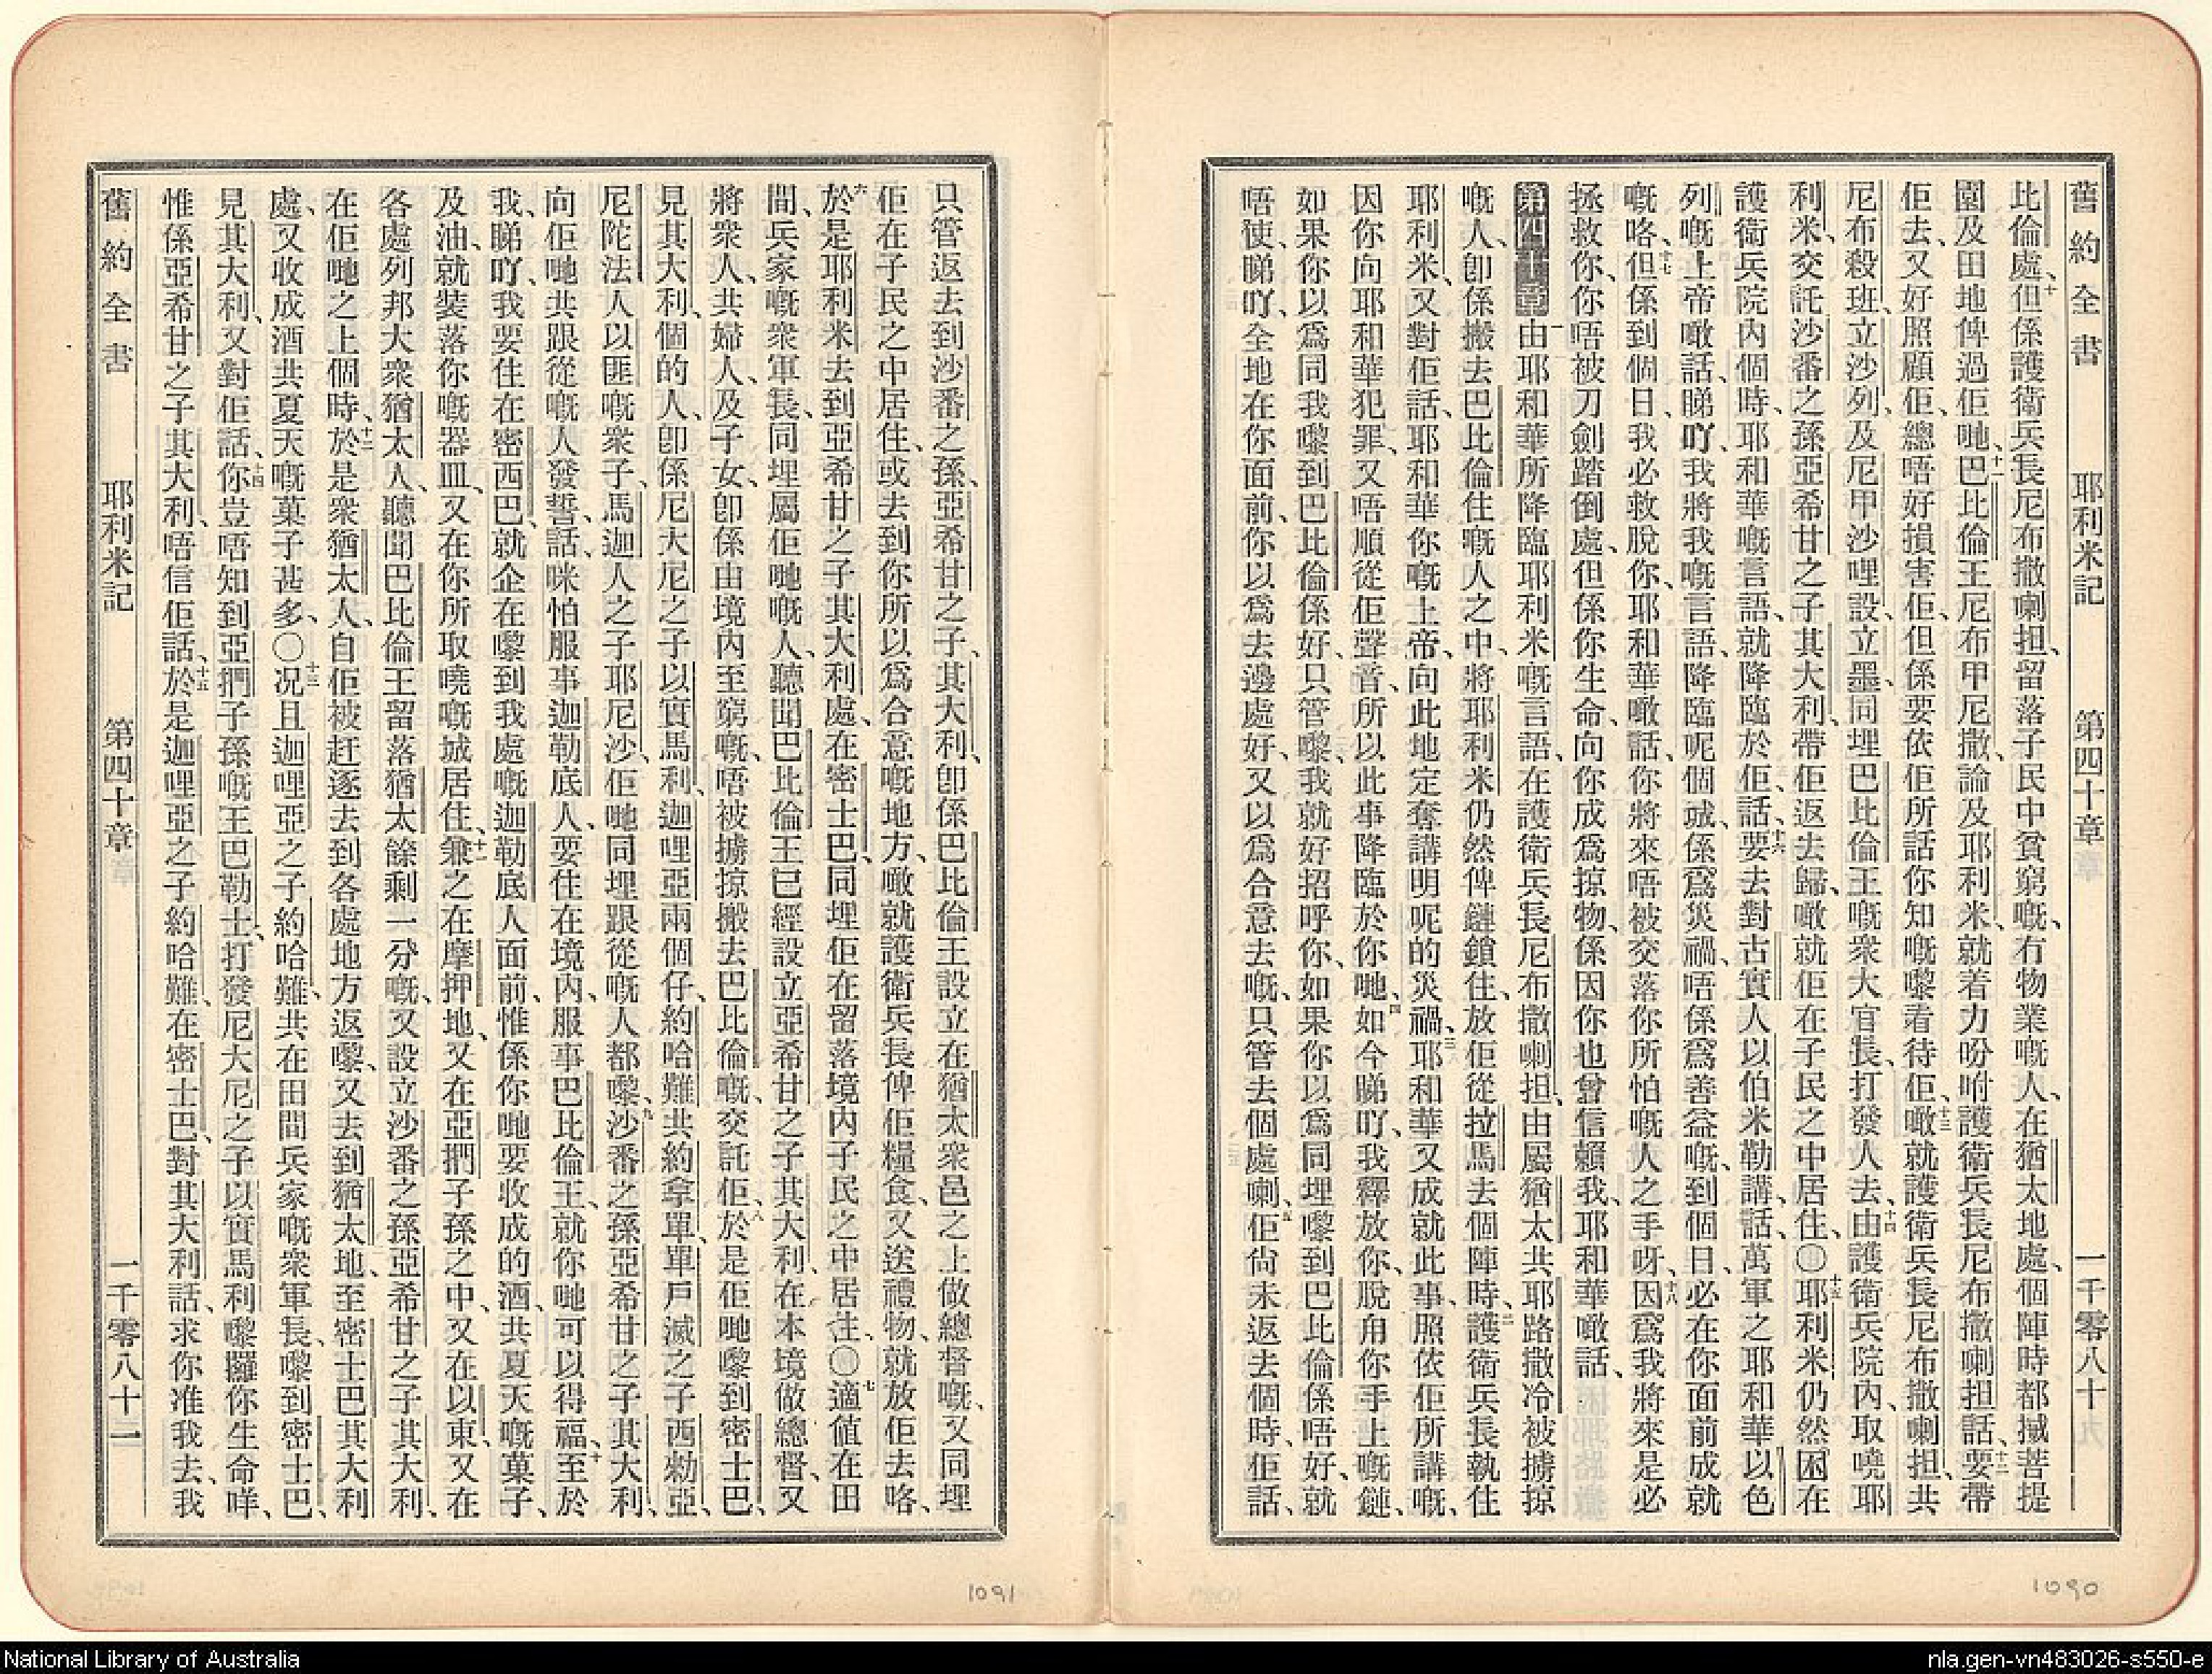 舊約全書 耶利米記 第四十章 一千零八十
比倫處、十但係護衛兵長尼布撒喇担、留落子民中貧窮嘅、冇物業嘅人、在猶太地處、個陣時都搣菩提
園及田地俾過佢哋、十一巴比倫王尼布甲尼撒、論及耶利米、就着力吩咐護衛兵長尼布撒喇担話、十二要帶
佢去、又好照顧佢、總唔好損害佢、但係要依佢所話你知嘅嚟看待佢、十三噉就護衛兵長尼布撒喇担、共
尼布殺班、立沙列、及尼甲沙哩設立墨、同埋巴比倫王嘅衆大官長、打發人去、十四由護衛兵院內、取嘵耶
利米、交託沙番之孫亞希甘之子其大利、帶佢返去歸、噉就佢在子民之中居住、〇十五耶利米仍然困在
護衛兵院內個時、耶和華嘅言語、就降臨於佢話、十六要去對古實人以伯米勒講、話、萬軍之耶和華以色
列嘅上帝噉話、睇吖、我將我嘅言語、降臨呢個城、係爲災禍、唔係爲善益嘅、到個日、必在你面前成就
嘅咯、十七但係到個日、我必救脫你、耶和華噉話、你將來唔被交落你所怕嘅人之手呀、十八因爲我將來是必
拯救你、你唔被刀劍踏倒處、但係你生命、向你成爲掠物、係因你也曾信賴我、耶和華噉話、
第四十章 一由耶和華所降臨耶利米嘅言語、在護衛兵長尼布撒喇担、由屬猶太共耶路撒冷被擄掠
嘅人、卽係搬去巴比倫住嘅人之中、將耶利米仍然俾鏈鎖住、放佢從拉馬去個陣時、二護衛兵長執住
耶利米、又對佢話、耶和華你嘅上帝、向此地定奪講明呢的災禍、三耶和華又成就此事、照依佢所講嘅、
因你向耶和華犯罪、又唔順從佢聲音、所以此事降臨於你哋、四如今睇吖、我釋放你、脫甪你手上嘅鏈、
如果你以爲同我嚟到巴比倫係好、只管嚟、我就好招呼你、如果你以爲同埋嚟到巴比倫係唔好、就
唔使、睇吖、全地在你面前、你以爲去邊處好、又以爲合意去嘅、只管去個處喇、五佢尙未返去個時、佢話、
只管返去到沙番之孫、亞希甘之子、其大利、卽係巴比倫王設立在猶太衆邑之上做總督嘅、又同埋
佢在子民之中居住、或去到你所以爲合意嘅地方、噉就護衛兵長俾佢糧食、又送禮物、就放佢去咯、
六於是耶利米去到亞希甘之子其大利處、在密士巴、同埋佢在留落境內子民之中居住、〇七適値在田
間、兵家嘅衆軍長、同埋屬佢哋嘅人、聽聞巴比倫王已經設立亞希甘之子其大利、在本境做總督、又
將衆人、共婦人、及子女、卽係由境內至窮嘅、唔被擄掠搬去巴比倫嘅、交託佢、八於是佢哋嚟到密士巴、
見其大利、個的人、卽係尼大尼之子以實馬利、迦哩亞兩個仔、約哈難、共約拿單、單戶滅之子西勑亞、
尼陀法人以匪嘅衆子、馬迦人之子耶尼沙、佢哋同埋跟從嘅人都嚟、九沙番之孫亞希甘之子其大利、
向佢哋共跟從嘅人發誓、話、咪怕服事迦勒底人、要住在境內、服事巴比倫王、就你哋可以得福、十至於
我、睇吖、我要住在密西巴、就企在嚟到我處嘅迦勒底人面前、惟係你哋要收成的酒、共夏天嘅菓子、
及油、就裝落你嘅器皿、又在你所取嘵嘅城居住、十一兼之在摩押地、又在亞捫子孫之中、又在以東、又在
各處列邦大衆猶太人、聽聞巴比倫王留落猶太餘剩一分嘅、又設立沙番之孫亞希甘之子其大利、
在佢哋之上個時、十二於是衆猶太人、自佢被赶逐去到各處地方返嚟、又去到猶太地、至密士巴其大利
處、又收成酒共夏天嘅菓子甚多、〇十三况且迦哩亞之子約哈難、共在田間兵家嘅衆軍長、嚟到密士巴、
見其大利、又對佢話、十四你豈唔知到亞捫子孫嘅王巴勒士、打發尼大尼之子以實馬利嚟攞你生命咩、
惟係亞希甘之子其大利、唔信佢話、十五於是迦哩亞之子約哈難、在密士巴、對其大利話、求你准我去、我
舊約全書 耶利米記 第四十章 一千零八十一
1090
1091
National Library of Australia
nla.gen-vn483026-s550-e